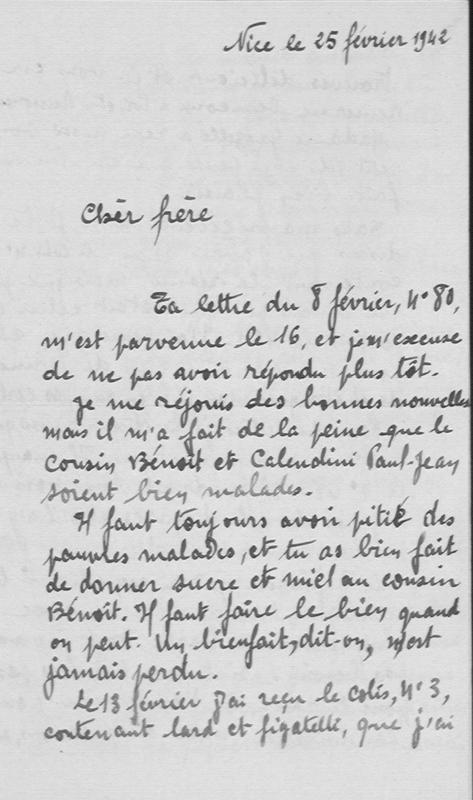 Nice le 25 février 1942
Chèr frère
Ta lettre du 8 février, N° 80,
m'est parvenue le 16, et je m'excuse
de ne pas avoir répondu plus tôt.
Je me réjouis des bonnes nouvelles
mais il m'a fait de la peine que le
cousin Bénoit et Calendini Paul-Jean
soient bien malades.
Il faut toujours avoir pitié des
pauvres malades, et tu as bien fait
de donner sucre et miel au cousin
Bénoit. Il faut faire le bien quand
on peut. Un bienfait, dit-on, n'est
jamais perdu.
Le 13 février j'ai reçu le colis, N° 3,
contenant lard et figatelli, que j'ai